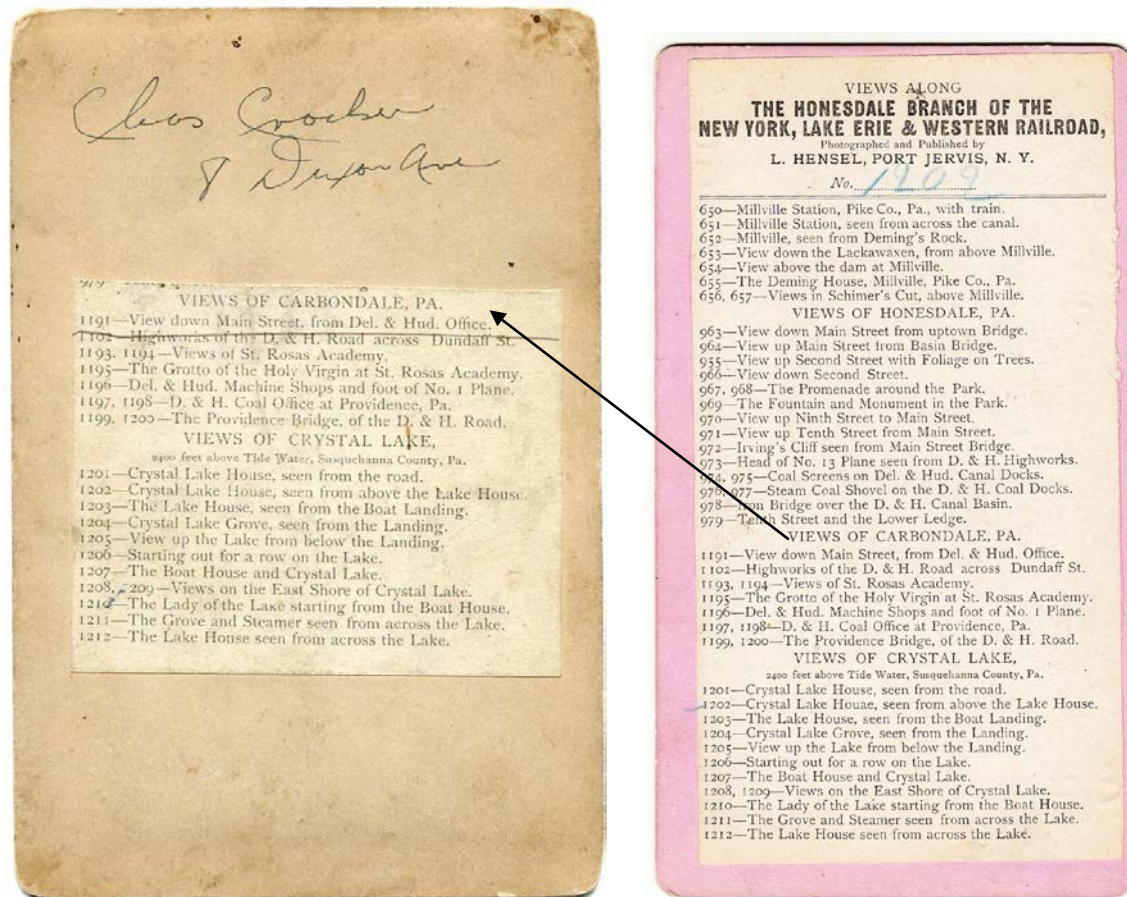 Chas Crocker
8 Dixon Ave
VIEWS OF CARBONDALE, PA.
1191—View down Main Street, from Del. & Hud. Office.
1102—Highworks of the D. & H. Road across Dundaff St.
1193, 1194—Views of St. Rosas Academy.
1195—The Grotto of the Holy Virgin at St. Rosas Academy.
1196—Del. & Hud. Machine Shops and foot of No. 1 Plane.
1197, 1198—D. & H. Coal Office at Providence, Pa.
1199, 1200—The Providence Bridge, of the D. & H. Road.
VIEWS OF CRYSTAL LAKE,
2400 feet above Tide Water, Susquehanna County, Pa.
1201—Crystal Lake House, seen from the road.
1202—Crystal Lake House, seen from above the Lake House.
1203—The Lake House, seen from the Boat Landing.
1204—Crystal Lake Grove, seen from the Landing.
1205—View up the Lake from below the Landing.
1206—Starting out for a row on the Lake.
1207—The Boat House and Crystal Lake.
1208, 1209—Views on the East Shore of Crystal Lake.
1210—The Lady of the Lake starting from the Boat House.
1211—The Grove and Steamer seen from across the Lake.
1212—The Lake House seen from across the Lake.
VIEWS ALONG
THE HONESDALE BRANCH OF THE
NEW YORK, LAKE ERIE & WESTERN RAILROAD,
Photographed and Published by
L. HENSEL, PORT JERVIS, N. Y.
No. 1202
650—Millville Station, Pike Co., Pa., with train.
651—Millville Station, seen from across the canal.
652—Millville, seen from Deming's Rock.
653—View down the Lackawaxen, from above Millville.
654—View above the dam at Millville.
655—The Deming House, Millville, Pike Co., Pa.
656, 657—Views in Schimer's Cut, above Millville.
VIEWS OF HONESDALE, PA.
963—View down Main Street from uptown Bridge.
964—View up Main Street from Basin Bridge.
955—View up Second Street with Foliage on Trees.
966—View down Second Street.
967, 968—The Promenade around the Park.
969—The Fountain and Monument in the Park.
970—View up Ninth Street to Main Street.
971—View up Tenth Street from Main Street.
972—Irving's Cliff seen from Main Street Bridge.
973—Head of No. 13 Plane seen from D. & H. Highworks.
974, 975—Coal Screens on Del. & Hud. Canal Docks.
976, 977—Steam Coal Shovel on the D. & H. Coal Docks.
978—Iron Bridge over the D. & H. Canal Basin.
979—Tenth Street and the Lower Ledge.
VIEWS OF CARBONDALE, PA.
1191—View down Main Street, from Del. & Hud. Office.
1102—Highworks of the D. & H. Road across Dundaff St.
1193, 1194—Views of St. Rosas Academy.
1195—The Grotto of the Holy Virgin at St. Rosas Academy.
1196—Del. & Hud. Machine Shops and foot of No. 1 Plane.
1197, 1198—D. & H. Coal Office at Providence, Pa.
1199, 1200—The Providence Bridge, of the D. & H. Road.
VIEWS OF CRYSTAL LAKE,
2400 feet above Tide Water, Susquehanna County, Pa.
1201—Crystal Lake House, seen from the road.
1202—Crystal Lake Houae, seen from above the Lake House.
1203—The Lake House, seen from the Boat Landing.
1204—Crystal Lake Grove, seen from the Landing.
1205—View up the Lake from below the Landing.
1206—Starting out for a row on the Lake.
1207—The Boat House and Crystal Lake.
1208, 1209—Views on the East Shore of Crystal Lake.
1210—The Lady of the Lake starting from the Boat House.
1211—The Grove and Steamer seen from across the Lake.
1212—The Lake House seen from across the Lake.